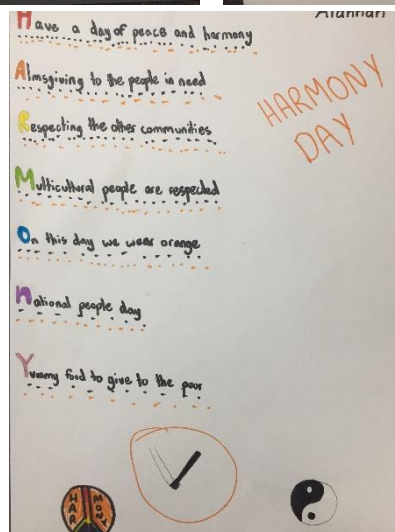 Alannah
Have a day of peace and harmony
Almsgiving to the people in need
HARMONY
DAY
Respecting the other communities
Multicultural people are respected
On this day we wear orange
National people day
Yummy food to give to the poor
HAR MONY